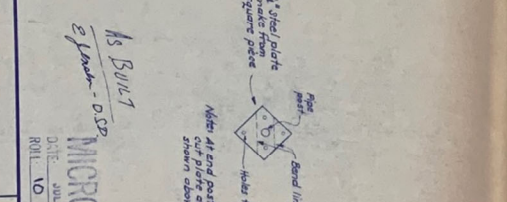 " steel plate
make from
square piece
Pipe
post
Bend li
Holes
Note: At end pos
cut plate a
shown abov
AS BUILT
- D.S.D.
MICRO
DATE JUL
ROLL 10